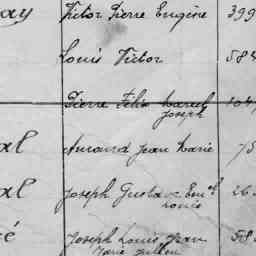 ay Victor Pierre Eugène 399
Louis Victor 584
Pierre Félix Marcel 104
Joseph
al Armand Jean Marie 75
al Joseph Gustave Em
Louis
é Joseph Louis Jean 585
Marie